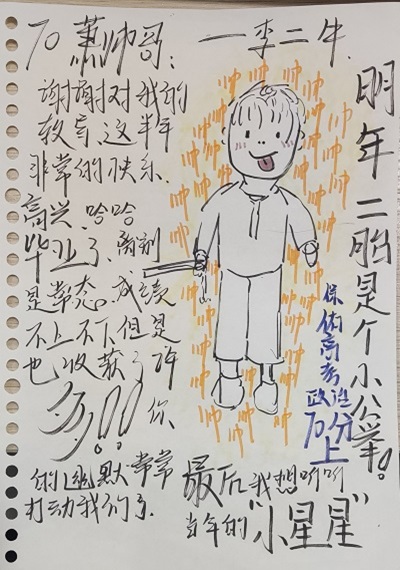 To 萧帅哥:
谢谢对我的
教育,这半年
非常的快乐.
高兴.哈哈
毕业了.离别
是常态.成绩
不上不下但是
也收获了许
多!!! 你
的幽默常常
打动我们了.
一李二牛.
帅 帅 帅 帅 帅 帅
明年二胎是个小公举!
保佑高考政治
70分上
最后我想听听
当年的“小星星”